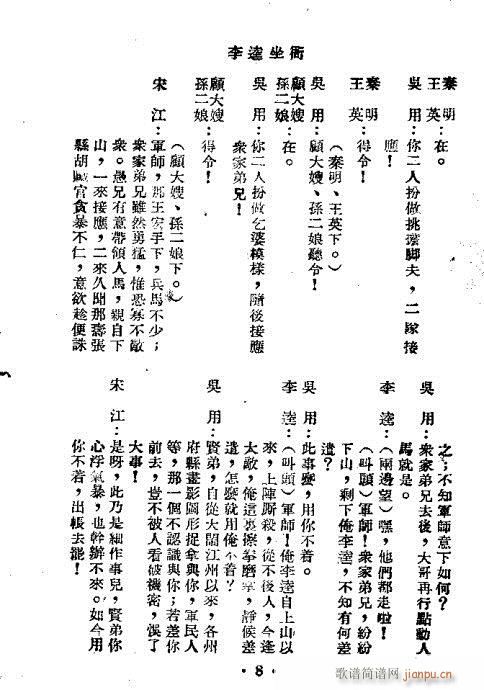 李逵坐衙
秦　明
王　英：在。
吳　用：你二人扮做挑擔脚夫，二隊接
應！
秦　明
王　英：得令！
（秦明、王英下。）
吳　用：顧大嫂、孫二娘聽令！
顧大嫂
孫二娘：在。
吳　用：你二人扮做乞婆模樣，隨後接應
衆家弟兄！
顧大嫂
孫二娘：得令！
（顧大嫂、孫二娘下。）
宋　江：軍師，那王宏手下，兵馬不少；
衆家弟兄雖然勇猛，惟恐寡不敵
衆。愚兄有意帶領人馬，親自下
山，一來接應，二來久聞那壽張
縣胡圖官貪暴不仁，意欲趁便誅
之；不知軍師意下如何？
吳　用：衆家弟兄去後，大哥再行點動人
馬就是。
李　逵：（兩邊望）嘿，他們都走啦！
（叫頭）軍師！衆家弟兄，紛紛
下山，剩下俺李逵，不知有何差
遣？
吳　用：此事麽，用你不着。
李　逵：（叫頭）軍師！俺李逵自上山以
來，上陣廝殺，從不後人，今逢
大敵，俺這裏擦拳磨掌，靜候差
遣，怎麽就用俺不着？
吳　用：賢弟，自從大鬧江州以來，各州
府縣畫影圖形捉拿與你，軍民人
等，那一個不認識與你；若差你
前去，豈不被人看破機密，悞了
大事！
宋　江：是呀，此乃是細作事兒，賢弟你
心浮氣暴，也幹辦不來。如今用
你不着，出帳去罷！
· 8 ·
歌谱简谱网
jianpu.cn